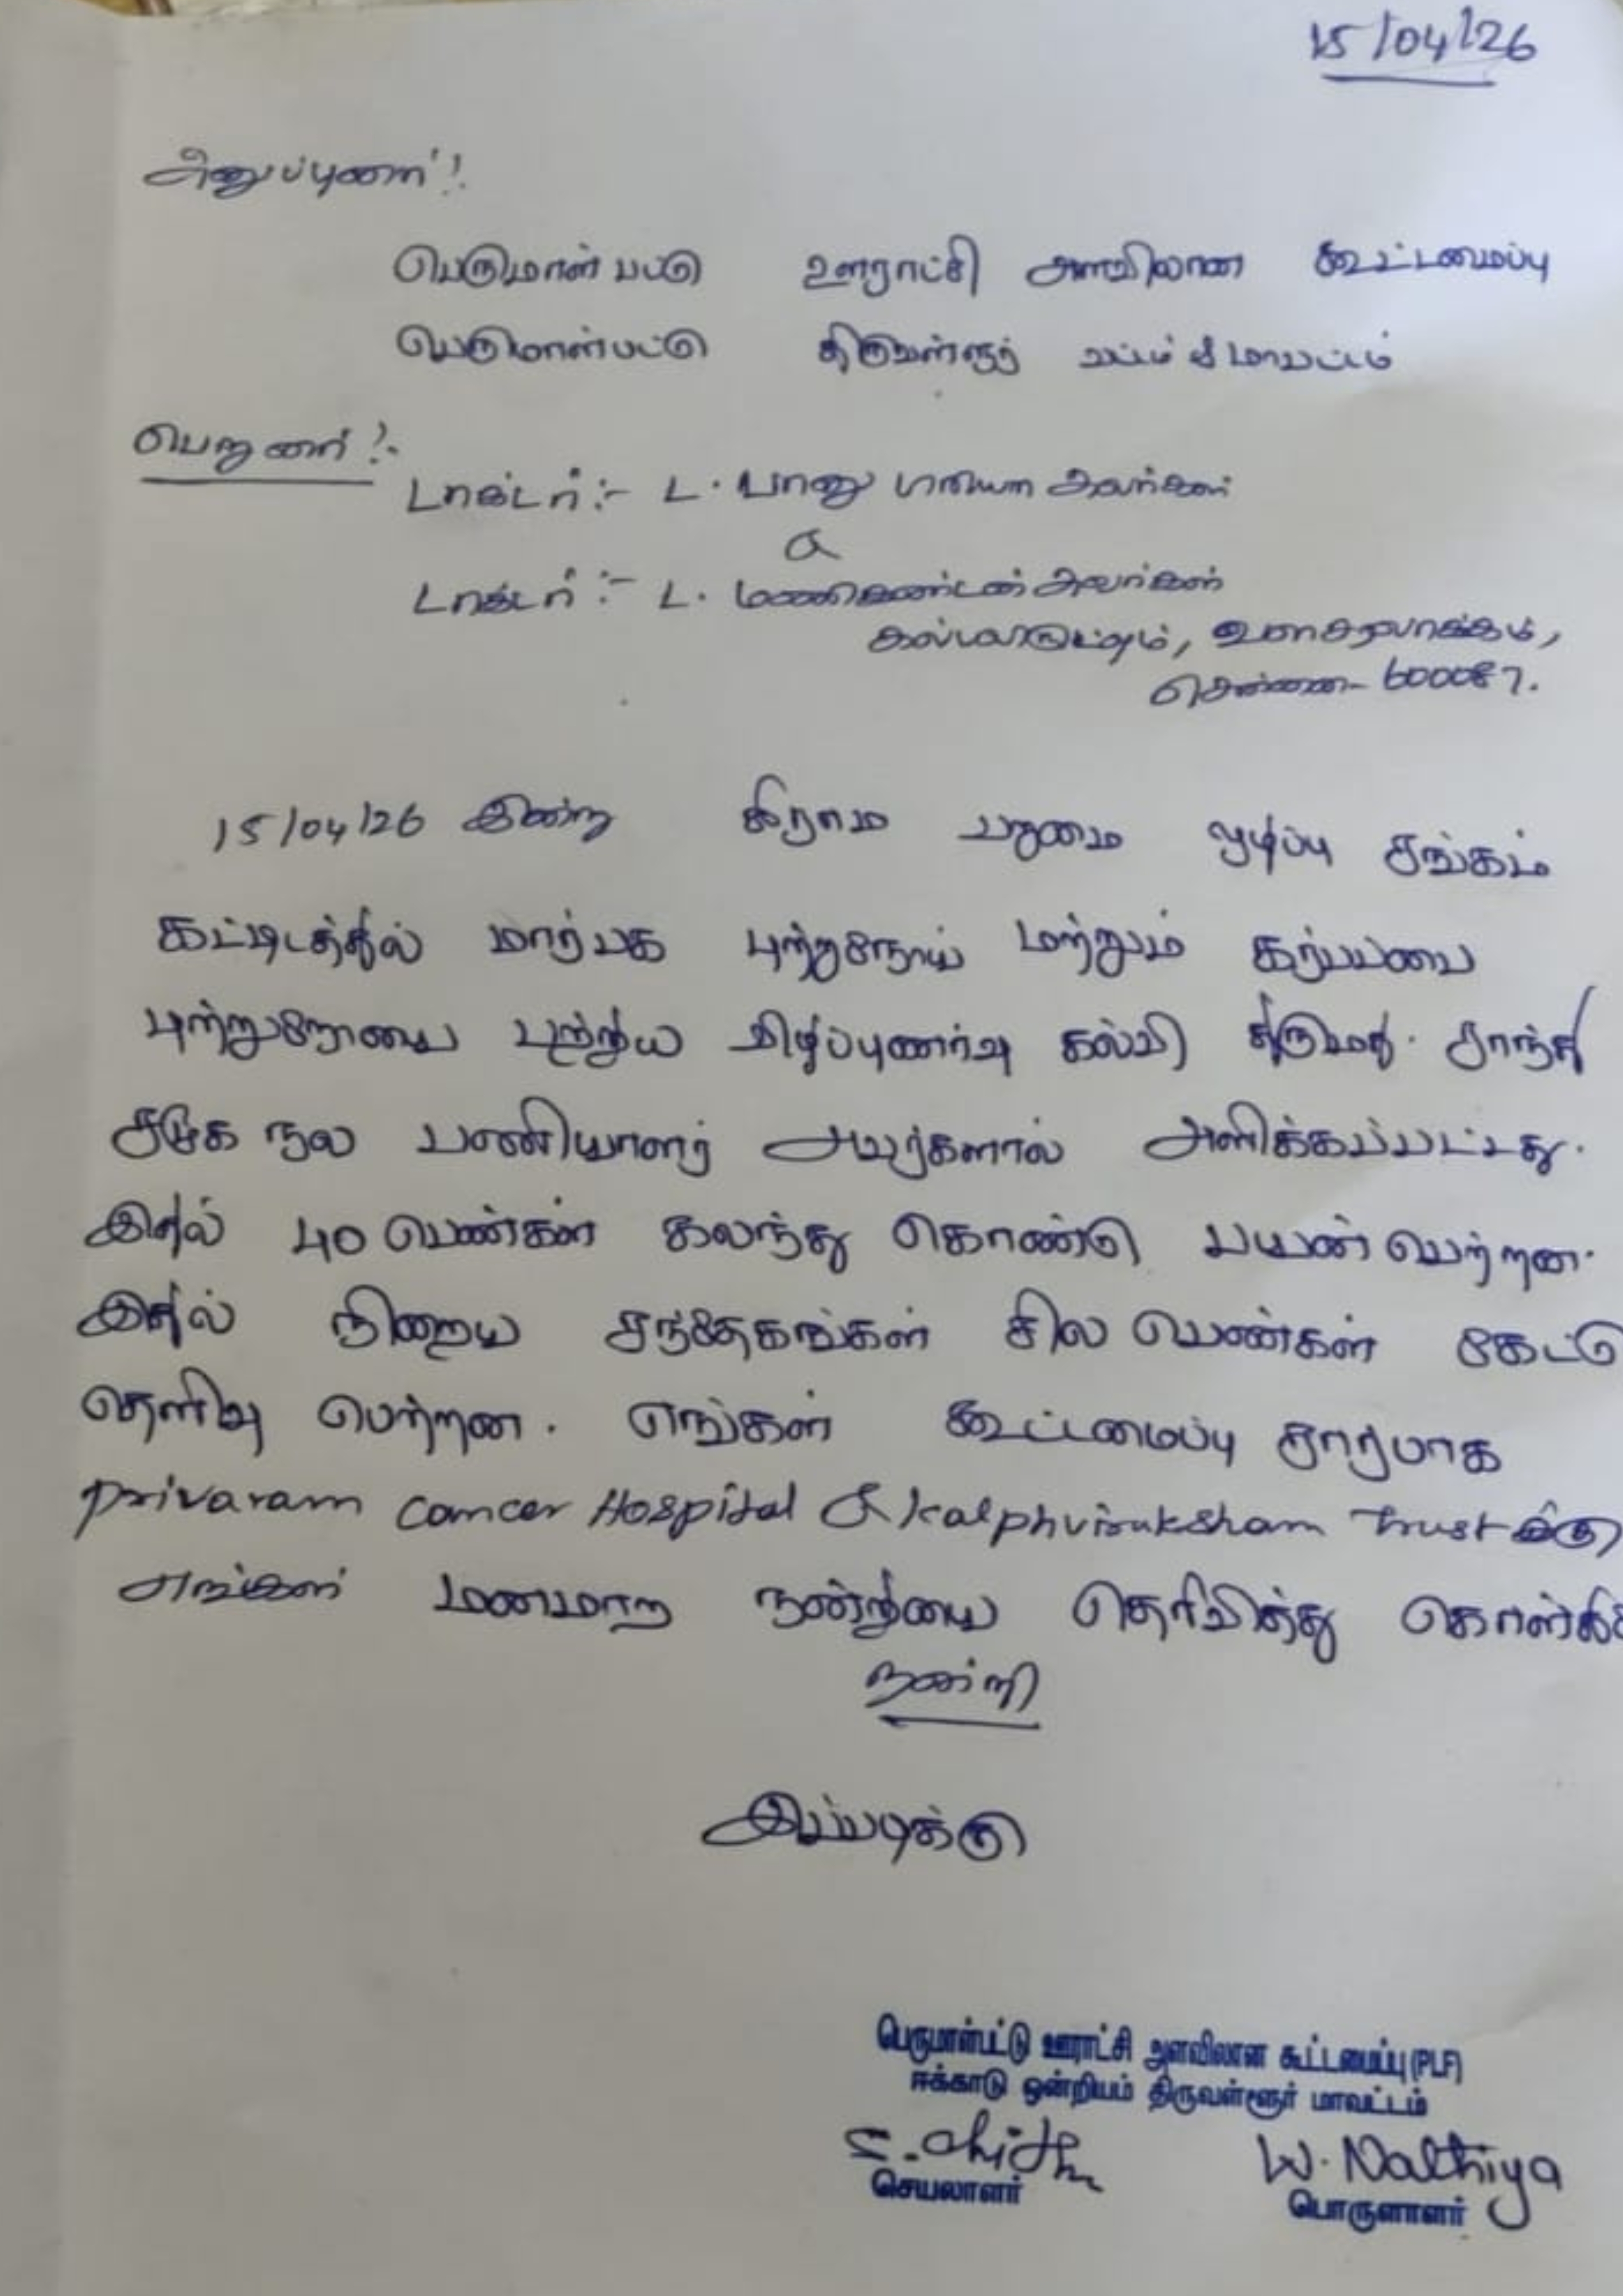 15/04/26
அனுப்புணர்!.
பெருமாள் பட்டு ஊராட்சி அளவிலான கூட்டமைப்பு
பெருமாள்பட்டு திருவள்ளூர் மாவட்டம்
பெறுணர் !.
டாக்டர் :- ட. பானு அவர்கள்
&
டாக்டர் :- ட. மணிகண்டன் அவர்கள்
வளசரவாக்கம்,
சென்னை - 600087.
15/04/26 இன்று கிராம வறுமை ஒழிப்பு சங்கம்
கட்டிடத்தில் மார்பக புற்றுநோய் மற்றும் கர்ப்பபை
புற்றுநோயை பற்றிய விழிப்புணர்வு கல்வி திருமதி. சாந்தி
சமூக நல பணியாளர் அவர்களால் அளிக்கப்பட்டது.
இதில் 40 பெண்கள் கலந்து கொண்டு பயன் பெற்றன.
இதில் நிறைய சந்தேகங்கள் சில பெண்கள் கேட்டு
தெளிவு பெற்றன. எங்கள் கூட்டமைப்பு சார்பாக
Privaram Cancer Hospital & Kalphviruksham Trust க்கு
எங்கள் மனமார நன்றியை தெரிவித்து
நன்றி
இப்படிக்கு
பெருமாள்பட்டு ஊராட்சி அளவிலான கூட்டமைப்பு (PLF)
ஈக்காடு ஒன்றியம் திருவள்ளூர் மாவட்டம்
W. Nathiya
செயலாளர் பொருளாளர்